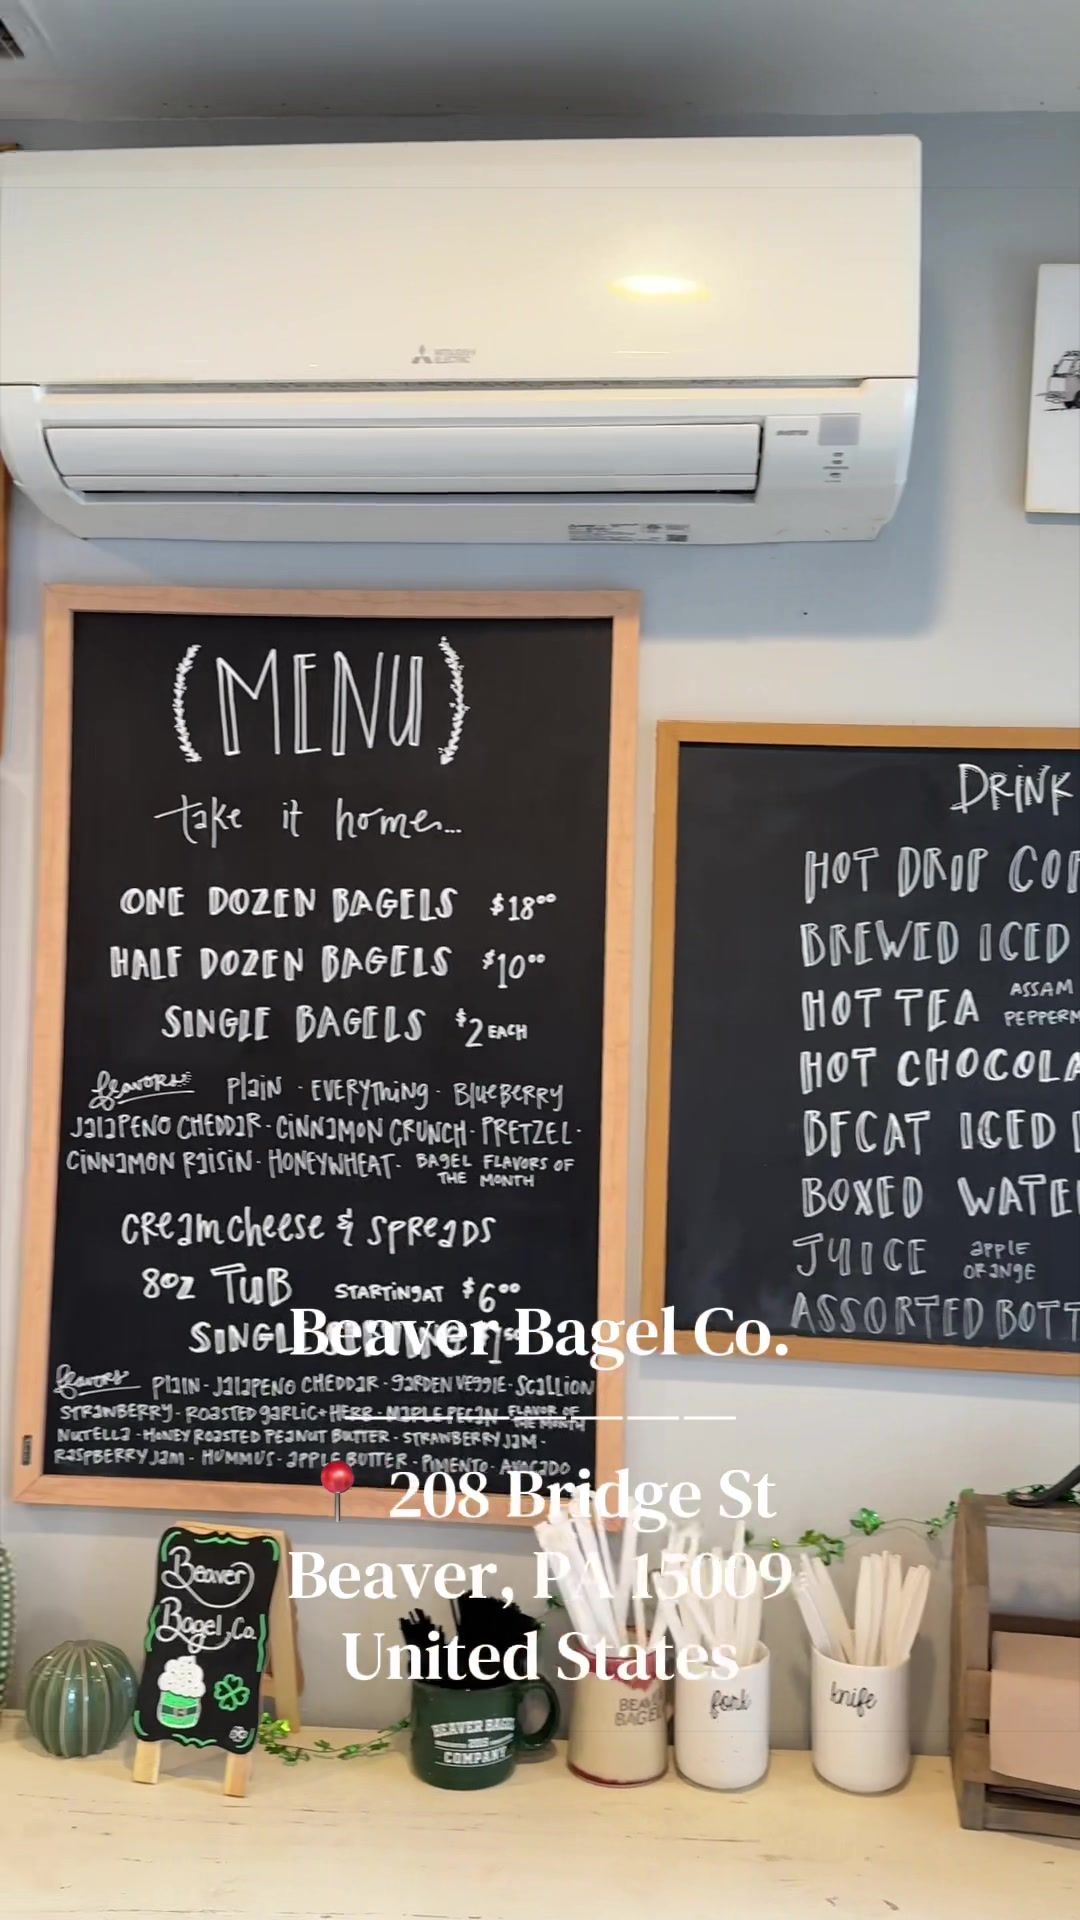 MITSUBISHI
ELECTRIC
INVERTER
(MENU)
take it home...
ONE DOZEN BAGELS $18⁰⁰
HALF DOZEN BAGELS $10⁰⁰
SINGLE BAGELS $2 EACH
flavors: Plain · EVERYthing · BlueBERRY
JalaPENO CHEDDaR · CiNNaMON CRUNCH · PRETZEL ·
CiNNaMON RaiSiN · HONEYWHEAT · BAGEL FLAVORS OF
THE MONTH
CReamcheese & SPReaDS
8oz TUB STARTiNg AT $6⁰⁰
SINGL
flavors PlaiN · JalaPENO CHEDDaR · gaRDEN VEggiE · Scallion
STRaWBERRY · ROaSTED gaRlic + HERB · MaPLE PECaN FLAVOR OF
THE MONTH
NUTELLa · HONEY ROASTED PEaNUT BUTTER · STRaWBERRY JaM ·
RaSPBERRY Jam · HUMMUS · aPPLE BUTTER · PiMENTO · AVOCaDO
DRINK
HOT DRIP COF
BREWED ICED
HOT TEA ASSAM
PEPPERM
HOT CHOCOLA
BFCAT ICED
BOXED WATE
JUICE aPPLE
ORaNgE
ASSORTED BOTT
Beaver Bagel Co.
208 Bridge St
Beaver, PA 15009
United States
Beaver
Bagel Co.
BEAVER BAGEL
COMPANY
BEAV
BAGE
fork
knife